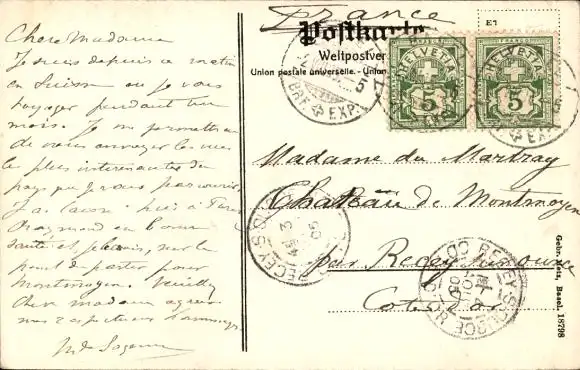 France
Postkarte
Weltpostver
Union postale universelle. - Union
HELVETIA
5
HELVETIA
5
BRF. EXP.
Chère Madame
Je suis depuis ce matin
en Suisse où je vais
voyager pendant un
mois. Je me permettrai
de vous envoyer les vues
les plus intéressantes du
pays que je vais parcourir.
J'ai laissé hier à Paris
Raymond en bonne
santé et sur le
point de partir pour
Montmoyen. Veuillez
chère madame agréer
mes respectueux hommages
Madame du Martray
Château de Montmoyen
par Recey sur Ource
Côte d'or
RECEY-S
05
RECEY-S-OURCE
05
Gebr. Metz, Basel. 18798